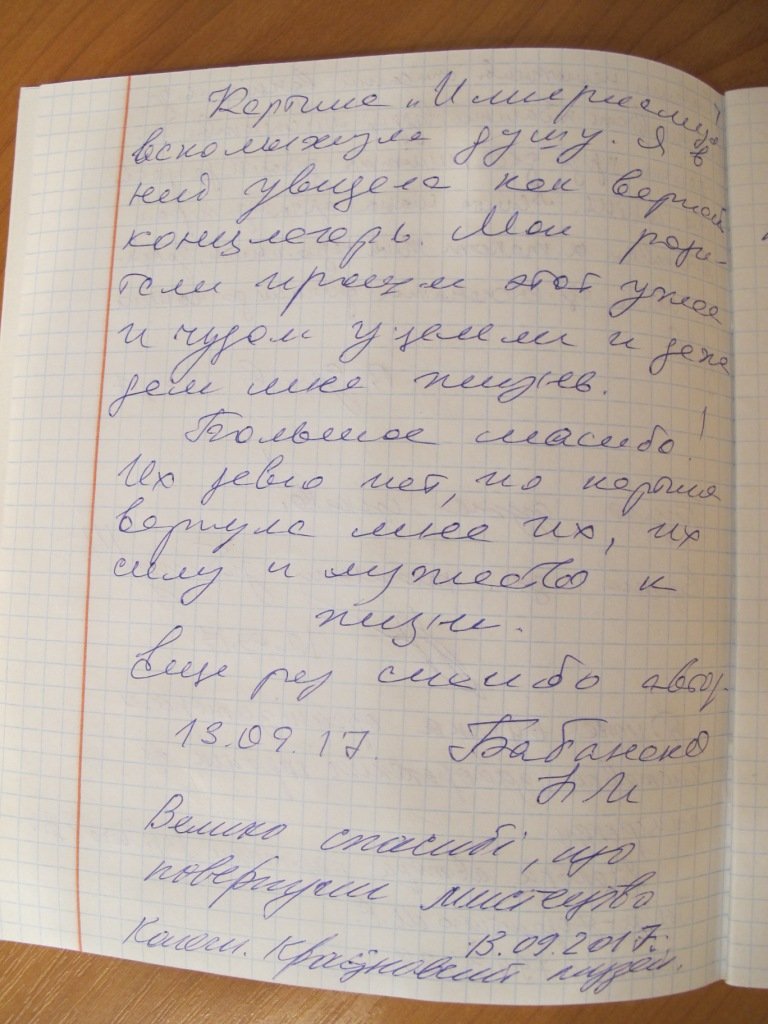 Картина „Империалица!
всколыхнула душу. Я в
ней увидела как верной
концлагерь. Мои роди-
тели прошли этот ужас
и чудом уцелели и даже
дали мне жизнь.
Большое спасибо!
Их давно нет, но картина
вернула мне их, их
силу и мужество к
жизни.
Еще раз спасибо автору
13.09.17. Бабанско
Н И
Велико спасибі, що
повернули мистецтво
13.09.2017
Краєзнавчий музей.